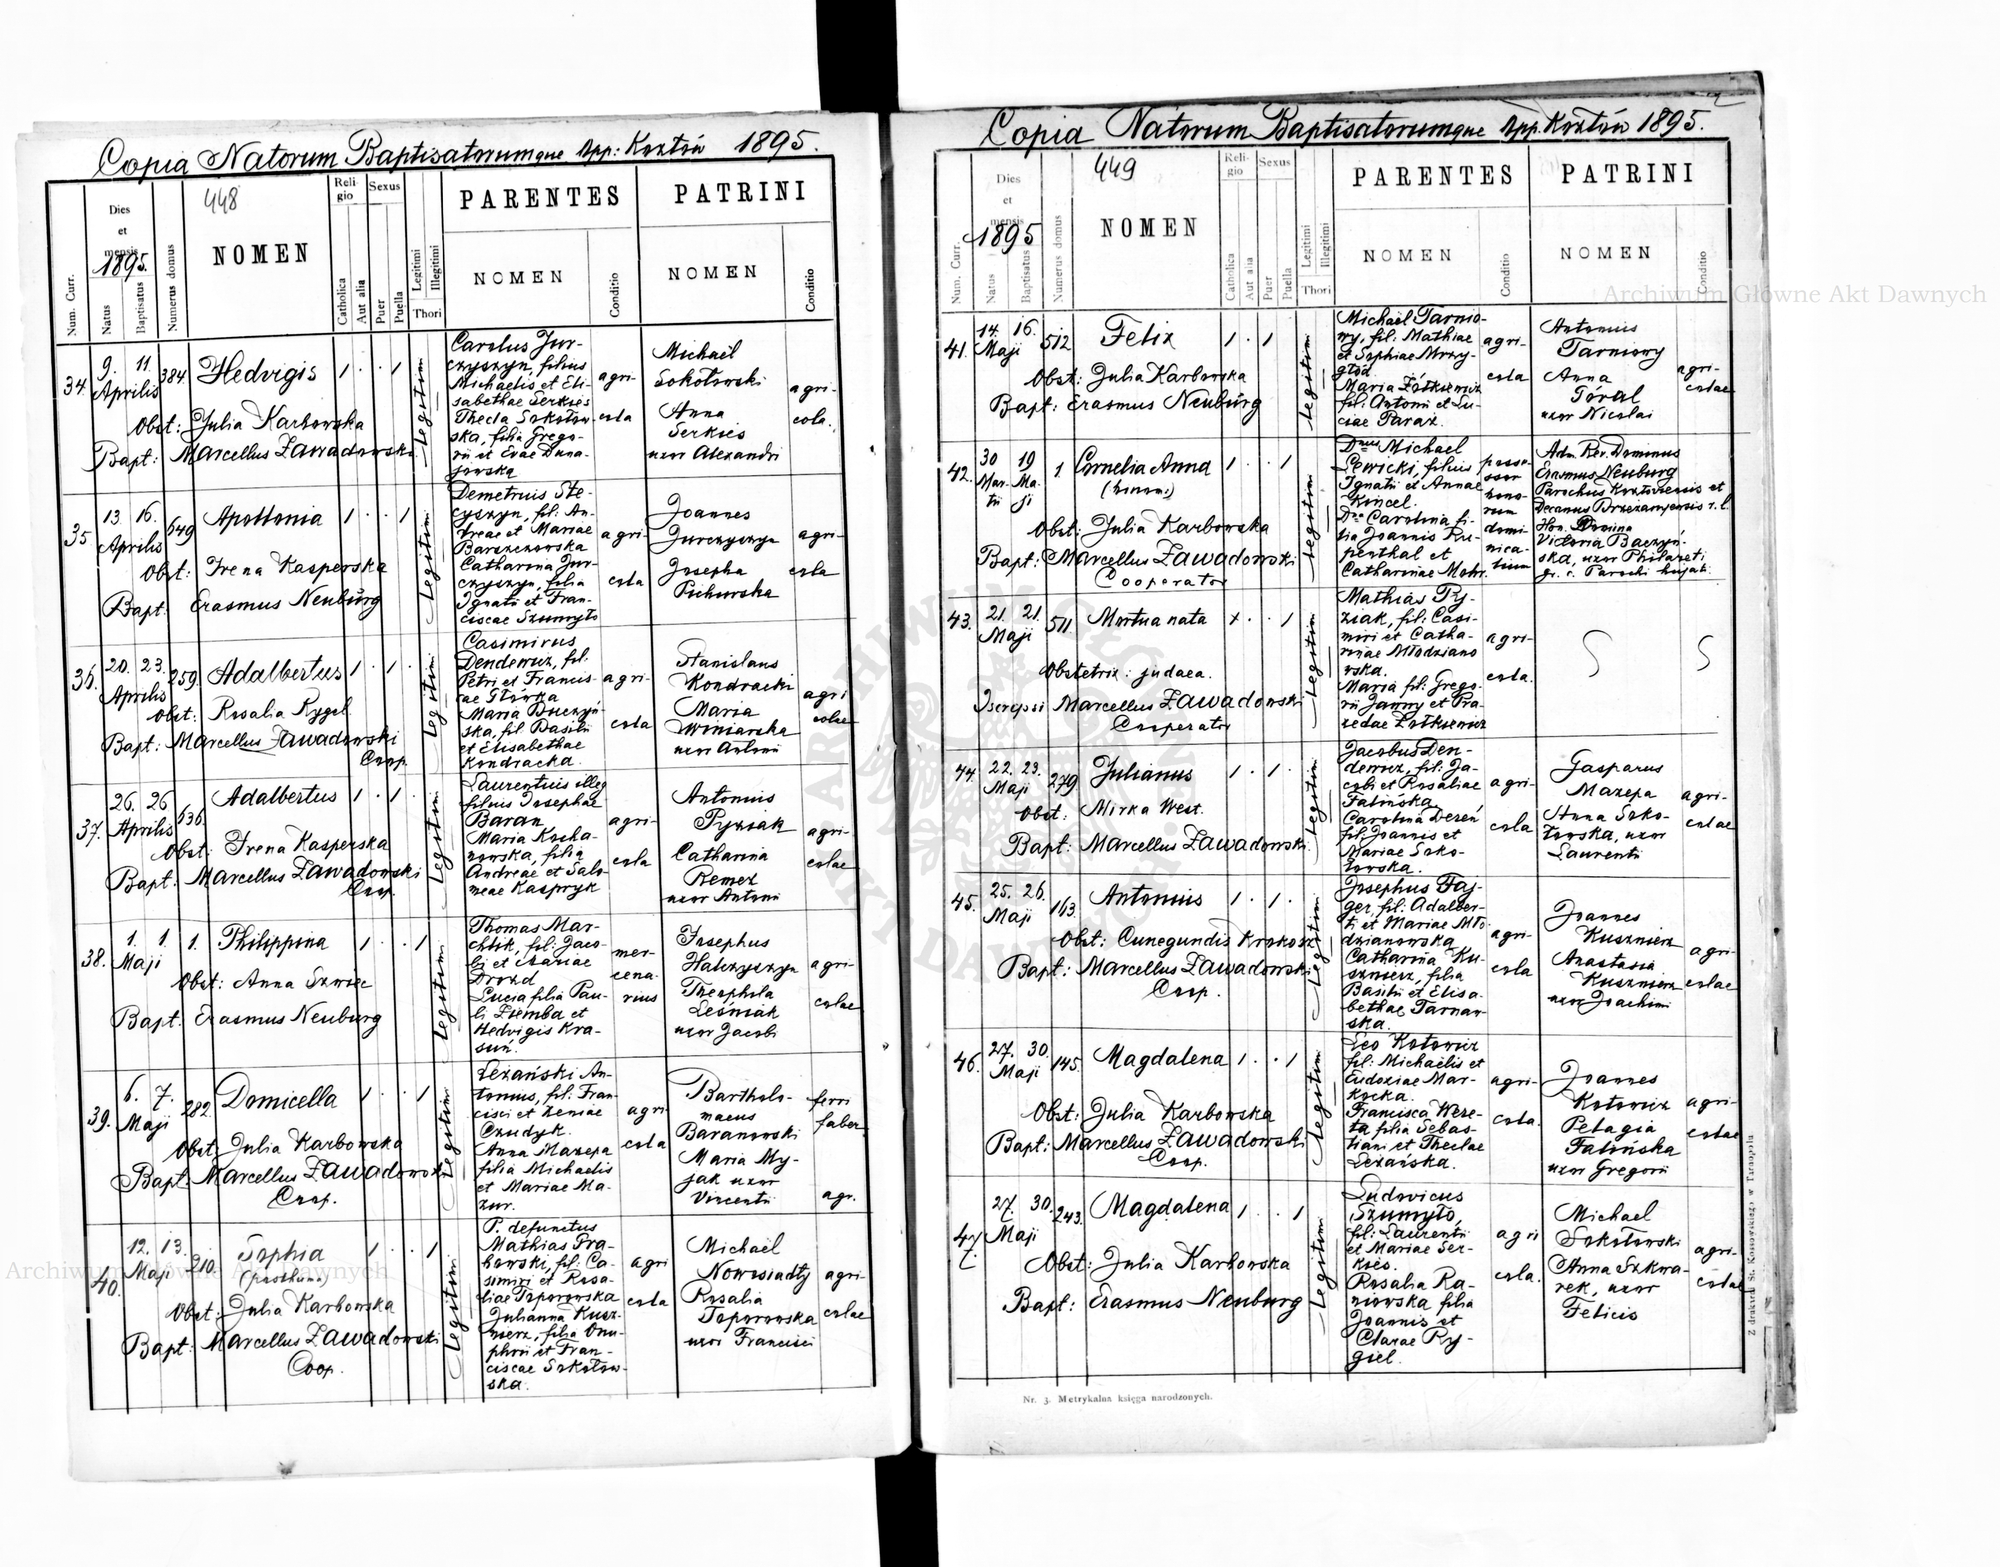 Copia Natorum Baptisatorumque opp: Kozłów 1895.
448
Num. Curr.
Dies et mensis
1895.
Natus
Baptisatus
Numerus domus
NOMEN
Religio
Catholica
Aut alia
Sexus
Puer
Puella
Legitimi
Illegitimi
Thori
PARENTES
NOMEN
Conditio
PATRINI
NOMEN
Conditio
34.
9. 11.
Aprilis
384
Hedvigis
1 . . 1
Obst: Julia Karbowska
Bapt: Marcellus Zawadowski
Legitimi
Carolus Jur-
czyszyn, filius
Michaelis et Eli-
sabethae Serkies
Thecla Sokołow-
ska, filia Grego-
rii et Evae Duna-
jowska
agri-
cola
Michaël
Sokołowski
Anna
Serkies
uxor Alexandri
agri-
cola.
35
13. 16.
Aprilis
649
Apollonia
1 . . 1
Obst: Irena Kasperska
Bapt: Erasmus Neuburg
Legitimi
Demetrius Ste-
cyszyn, fil: An-
dreae et Mariae
Barszczowska
Catharina Jur-
czyszyn, filia
Ignatii et Fran-
ciscae Szumyło
agri-
cola
Joannes
Jurczyszyn
Josepha
Pichurska
agri-
cola
36.
20. 23.
Aprilis
259.
Adalbertus
1 . 1 .
Obst: Rosalia Rygel
Bapt: Marcellus Zawadowski
Coop.
Legitimi
Casimirus
Dendewicz, fil:
Petri et Francis-
cae Głowka
Maria Duczyń-
ska, fil. Basilii
et Elisabethae
Kondracka.
agri-
cola
Stanislaus
Kondracki
Maria
Winiarska
uxor Antonii
agri
colae
37.
26. 26
Aprilis
636.
Adalbertus
1 . 1 .
Obst: Irena Kasperska
Bapt: Marcellus Zawadowski
Coop.
Legitimi
Laurentius illeg
filius Josephae
Baran
Maria Kocha-
nowska, filia
Andreae et Salo-
meae Kaspryk
agri-
cola
Antonius
Pyziak
Catharina
Remez
uxor Antoni
agri-
colae
38.
1. 1.
Maji
1.
Philippina
1 . . 1
Obst: Anna Szwiec
Bapt: Erasmus Neuburg
Legitimi
Thomas Mar-
chlik, fil: Jaco-
bi et Mariae
Drozd
Lucia filia Pau-
li Ziemba et
Hedvigis Kra-
suń.
mer-
cena-
rius
Josephus
Halczyszyn
Theophila
Leśniak
uxor Jacobi
agri-
colae
39.
6. 7.
Maji
282
Domicella
1 . . 1
Obst: Julia Karbowska
Bapt: Marcellus Zawadowski
Coop.
Legitimi
Leżański An-
tonius, fil: Fran-
cisci et Xeniae
Czudyk.
Anna Mazepa
filia Michaelis
et Mariae Ma-
zur.
agri
cola
Bartholo-
maeus
Baranowski
Maria My-
jak uxor
Vincentii
ferri
faber
agr.
40.
12. 13.
Maji
210.
Sophia
(posthuma)
1 . . 1
Obst: Julia Karbowska
Bapt: Marcellus Zawadowski
Coop.
Legitimi
P. defunctus
Mathias Gra-
bowski, fil: Ca-
simiri et Rosa-
liae Toporowska
Julianna Kusz-
nierz, filia Onu-
phrii et Fran-
ciscae Sokołow-
ska.
agri
cola
Michaël
Nowosiadły
Rosalia
Toporowska
uxor Francisci
agri-
colae
Copia Natorum Baptisatorumque opp. Kozłów 1895.
449
Num. Curr.
Dies et mensis
1895
Natus
Baptisatus
Numerus domus
NOMEN
Religio
Catholica
Aut alia
Sexus
Puer
Puella
Legitimi
Illegitimi
Thori
PARENTES
NOMEN
Conditio
PATRINI
NOMEN
Conditio
41.
14. 16.
Maji
512
Felix
1 . 1
Obst: Julia Karbowska
Bapt: Erasmus Neuburg
Legitimi
Michaël Tarnio-
wy, fil: Mathiae
et Sophiae Mrzy-
głód.
Maria Żółkiewicz
fil: Antonii et Lu-
ciae Paraz.
agri-
cola
Antonius
Tarniowy
Anna
Góral
uxor Nicolai
agri-
colae
42.
30 19
Mar- Ma-
tii ji
1
Cornelia Anna
(honor:)
1 . . 1
Obst: Julia Karbowska
Bapt: Marcellus Zawadowski
Cooperator
Legitimi
Dnus Michael
Lewicki, filius
Ignatii et Annae
Koncel.
Dna Carolina fi-
lia Joannis Ru-
penthal et
Catharinae Mohr.
posse-
ssor
bono-
rum
domi-
nica-
lium
Adm. Rev. Dominus
Erasmus Neuburg
Parochus Kozłoviensis et
Decanus Brzeżanyensis r. l.
Hon. Domina
Victoria Baczyń-
ska, uxor Philareti
gr. c. Parochi hujati.
43.
21. 21.
Maji
511.
Mortua nata
x . . 1
Obstetrix: judaea.
Inscripsi Marcellus Zawadowski
Cooperator
Legitimi
Mathias Py-
ziak, fil: Casi-
miri et Catha-
rinae Młodziano
wska.
Maria fil: Grego-
rii Jawny et Pra-
xedae Żółkiewicz
agri-
cola.
44.
22. 23.
Maji
279
Julianus
1 . 1 .
Obst: Mirka West.
Bapt: Marcellus Zawadowski.
Legitimi
Jacobus Den-
dewicz, fil: Ja-
cobi et Rosaliae
Falińska
Carolina Dereń
fil: Joannis et
Mariae Soko-
łowska.
agri-
cola
Gasparus
Mazepa
Anna Soko-
łowska, uxor
Laurentii
agri-
colae
45.
25. 26.
Maji
163.
Antonius
1 . 1 .
Obst: Cunegundis Krokosz
Bapt: Marcellus Zawadowski
Coop.
Legitimi
Josephus Faj-
ger, fil: Adalber-
ti et Mariae Mło
dzianowska
Catharina Ku-
sznierz, filia
Basilii et Elisa-
bethae Tarnaw-
ska.
agri-
cola
Joannes
Kusznierz
Anastasia
Kusznierz
uxor Joachimi
agri-
colae
46.
27. 30.
Maji
145.
Magdalena
1 . . 1
Obst: Julia Karbowska
Bapt: Marcellus Zawadowski
Coop.
Legitimi
Leo Kotowicz
fil: Michaëlis et
Eudoxiae Mar-
kocka.
Francisca Were-
ta filia Sebas-
tiani et Theclae
Leżańska.
agri-
cola.
Joannes
Kotowicz
Pelagia
Falińska
uxor Gregorii
agri-
colae
47.
27. 30.
Maji
243.
Magdalena
1 . . 1
Obst: Julia Karbowska
Bapt: Erasmus Neuburg
Legitimi
Ludovicus
Szumyło,
fil: Laurentii
et Mariae Ser-
kies.
Rosalia Ra-
niowska filia
Joannis et
Clarae Ry-
giel.
agri
cola.
Michael
Sokołowski
Anna Szkwa-
rek, uxor
Felicis
agri-
colae
Nr. 3. Metrykalna księga narodzonych.
Z drukarni St. Kossowskiego w Tarnopolu.
Archiwum Główne Akt Dawnych
Archiwum Główne Akt Dawnych
ARCHIWUM GŁÓWNE AKT DAWNYCH